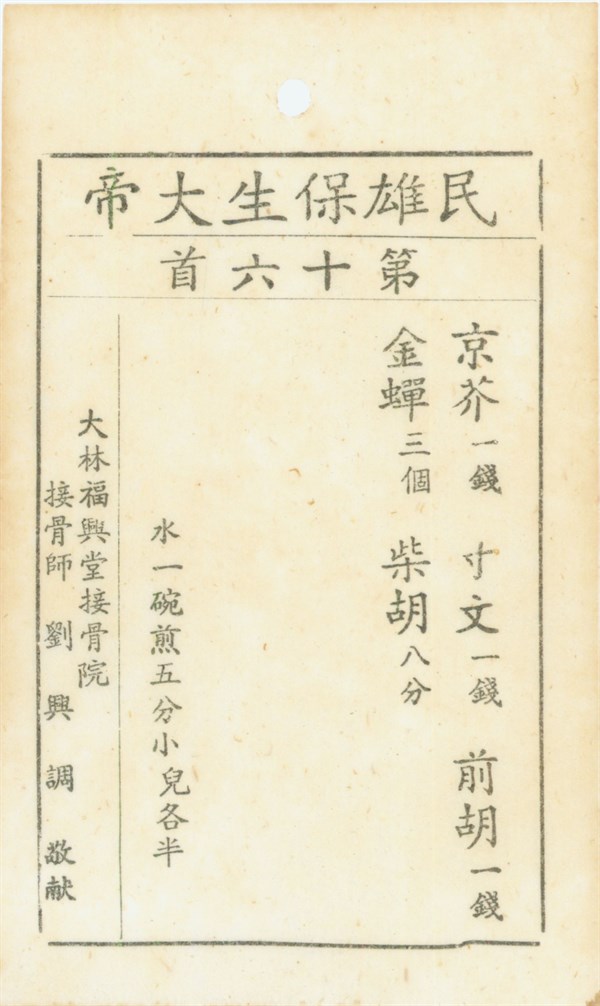 民雄保生大帝
第十六首
京芥一錢 寸文一錢 前胡一錢
金蟬三個 柴胡八分
水一碗煎五分小兒各半
大林福興堂接骨院
接骨師 劉興調 敬献